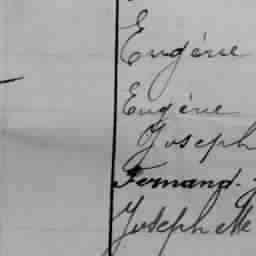 Eugène
Eugène
Joseph
Fernand.
Joseph